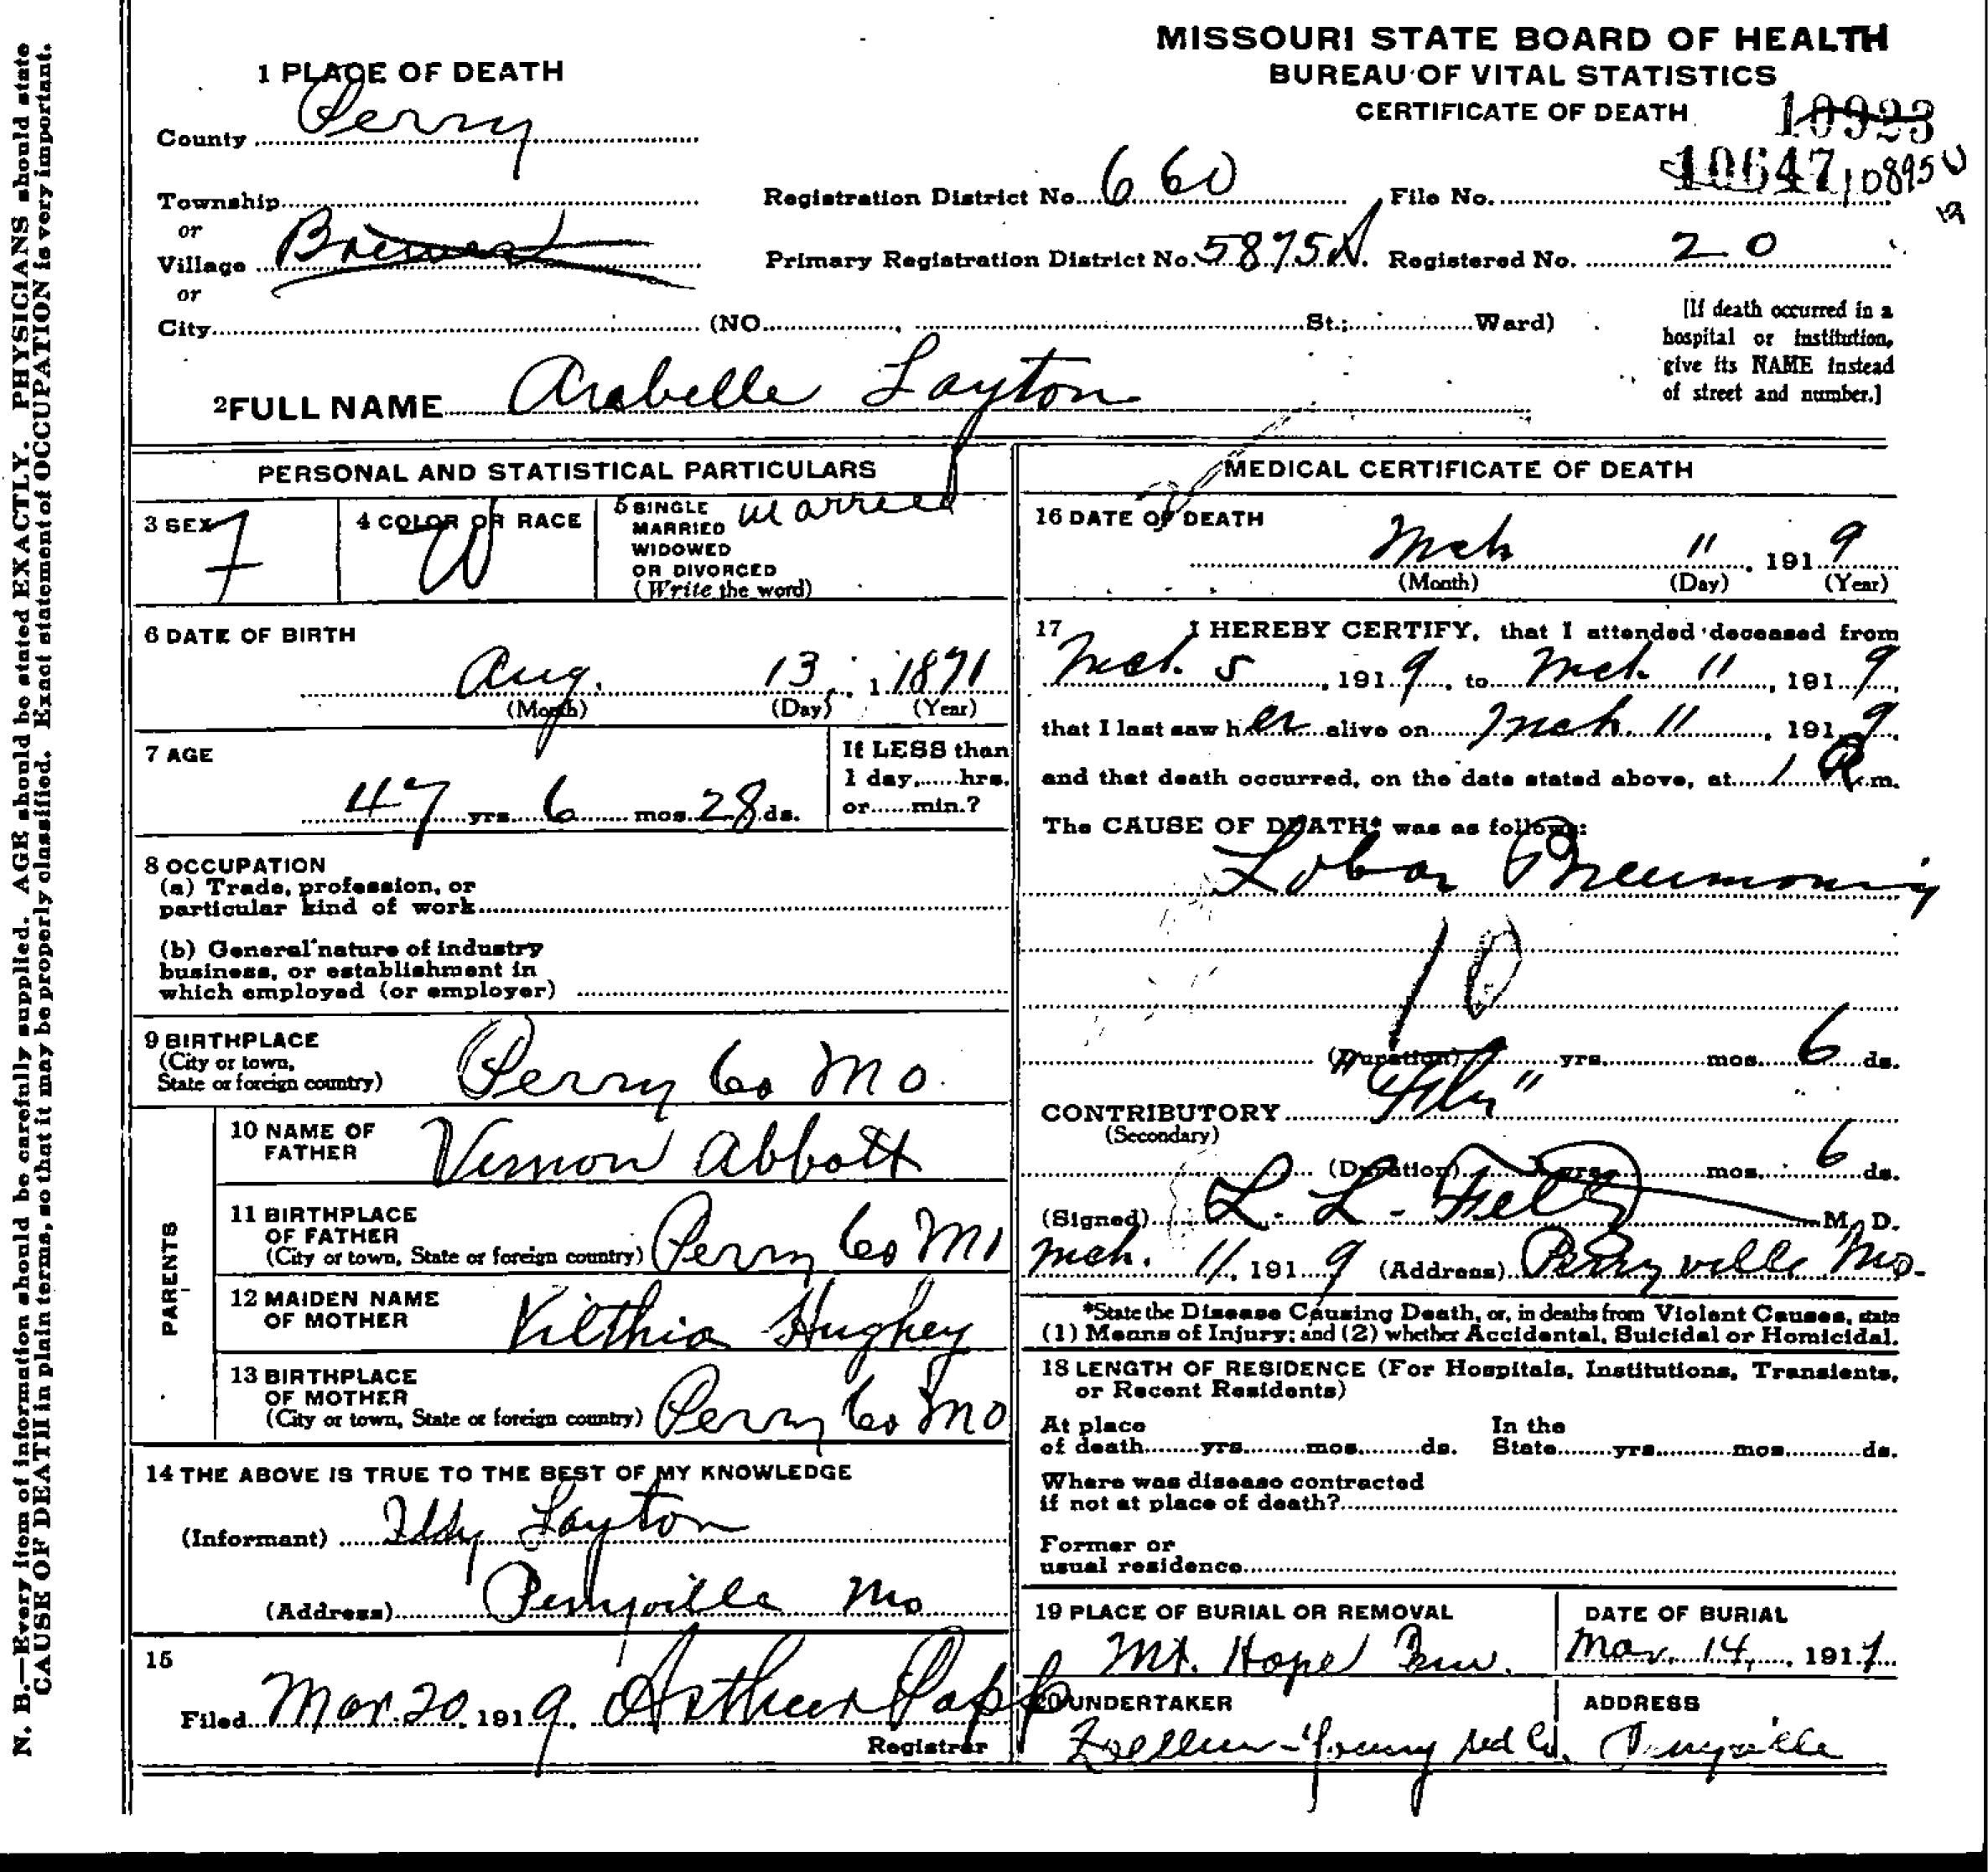 MISSOURI STATE BOARD OF HEALTH
BUREAU OF VITAL STATISTICS
CERTIFICATE OF DEATH
10923
10647 10895
1 PLACE OF DEATH
County Perry
Township
or
Village
or
City (NO. , St.; Ward)
Registration District No. 660 File No.
Primary Registration District No. 5875A Registered No. 20
[If death occurred in a
hospital or institution,
give its NAME instead
of street and number.]
2 FULL NAME Arabelle Layton
PERSONAL AND STATISTICAL PARTICULARS
3 SEX F
4 COLOR OR RACE W
5 SINGLE
MARRIED
WIDOWED
OR DIVORCED
(Write the word)
married
6 DATE OF BIRTH
Aug. 13, 1 1871
(Month) (Day) (Year)
7 AGE
47 yrs. 6 mos. 28 ds.
If LESS than
1 day, hrs.
or min.?
8 OCCUPATION
(a) Trade, profession, or
particular kind of work
(b) General nature of industry
business, or establishment in
which employed (or employer)
9 BIRTHPLACE
(City or town,
State or foreign country) Perry Co Mo.
PARENTS
10 NAME OF
FATHER Vernon Abbott
11 BIRTHPLACE
OF FATHER
(City or town, State or foreign country) Perry Co Mo
12 MAIDEN NAME
OF MOTHER Hughey
13 BIRTHPLACE
OF MOTHER
(City or town, State or foreign country) Perry Co Mo
14 THE ABOVE IS TRUE TO THE BEST OF MY KNOWLEDGE
(Informant) Layton
(Address) Perryville Mo
15
Filed Mar. 20, 1919, Arthur Papp
Registrar
MEDICAL CERTIFICATE OF DEATH
16 DATE OF DEATH
Mch 11, 1919
(Month) (Day) (Year)
17 I HEREBY CERTIFY, that I attended deceased from
Mch. 5, 1919, to Mch 11, 1919,
that I last saw her alive on Mch. 11, 1919,
and that death occurred, on the date stated above, at 1 m.
The CAUSE OF DEATH* was as follows:
Lobar Pneumonia
10
(Duration) yrs. mos. 6 ds.
CONTRIBUTORY "Flu"
(Secondary)
(Duration) yrs. mos. 6 ds.
(Signed) L. L. M. D.
Mch. 11, 1919 (Address) Perryville Mo.
*State the Disease Causing Death, or, in deaths from Violent Causes, state
(1) Means of Injury; and (2) whether Accidental, Suicidal or Homicidal.
18 LENGTH OF RESIDENCE (For Hospitals, Institutions, Transients,
or Recent Residents)
At place
of death yrs. mos. ds.
In the
State yrs. mos. ds.
Where was disease contracted
if not at place of death?
Former or
usual residence
19 PLACE OF BURIAL OR REMOVAL
Mt. Hope Cem.
DATE OF BURIAL
Mar. 14, 1919
20 UNDERTAKER
Zoellner-Young Co.
ADDRESS
Perryville
N. B.—Every item of information should be carefully supplied. AGE should be stated EXACTLY. PHYSICIANS should state
CAUSE OF DEATH in plain terms, so that it may be properly classified. Exact statement of OCCUPATION is very important.